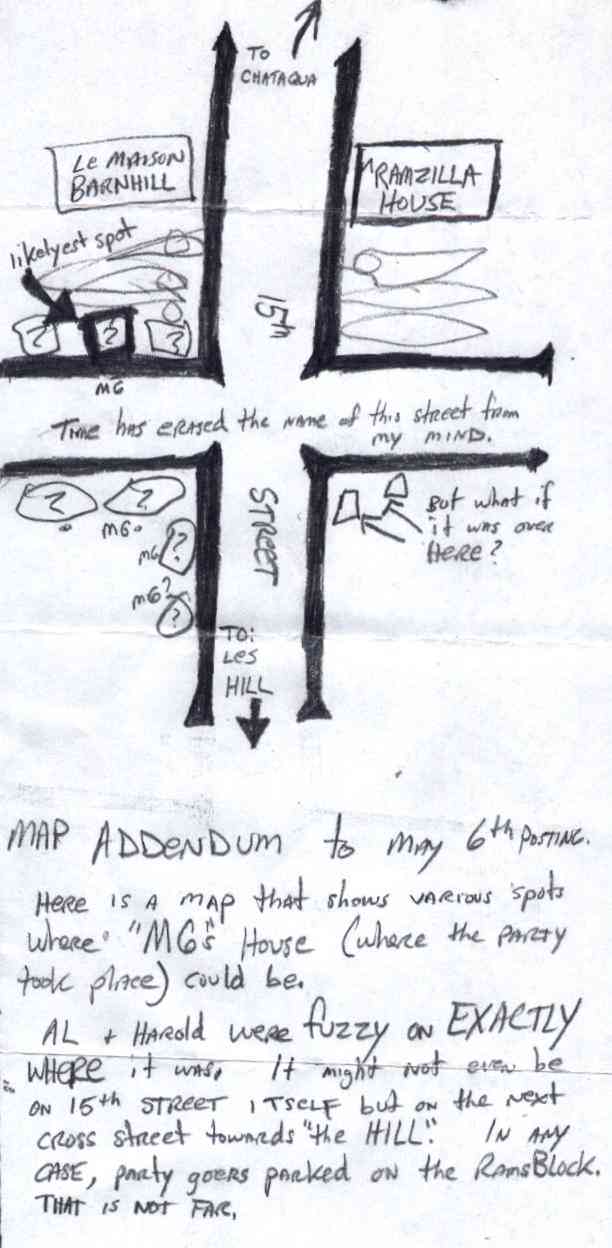 TO
CHATAQUA
Le MAISON
BARNHILL
RAMZILLA
HOUSE
likelyest spot
15th
?
?
?
MG
Time has erased the name of this street from
my mind.
?
?
MG
STREET
MG
?
MG?
?
But what if
it was over
Here?
TO:
Les
HILL
MAP ADDENDUM to may 6th POSTING.
Here is a map that shows various spots
where "MG's" House (where the party
took place) could be.
AL + Harold were fuzzy on EXACTLY
WHERE it was. It might not even be
on 15th STREET ITSELF but on the next
cross street towards "the HILL". In any
case, party goers parked on the RamsBlock.
THAT IS NOT FAR.